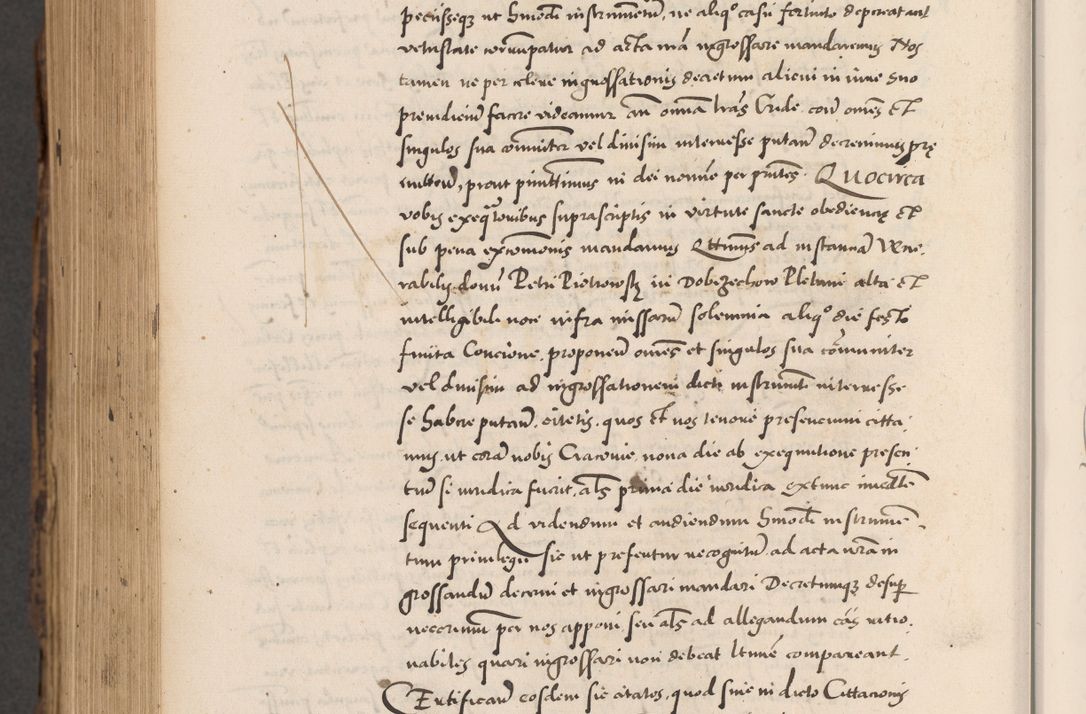 petiisseq3 ut hmodi instrumentu, ne aliqo casu fortuito depereat aut
vetustate corrumpatur ad acta nra ingrossare mandaremus Nos
tamen ne per celere ingrossationis decretum alicui in iure suo
preiudiciu facere videamur an omia lras Cride cora omes et
singulos sua comuniter vel divisim interesse putan decrevimus prę
mittend, prout pmittimus in dei nomine per pntes. Quocirca
vobis exeqtionibus suprascriptis in virtute sancte obediencię et
sub pena excomonis mandamus Qttinus ad instancia Vene.
rabilis domi Petri Piotrowsky in Dobrzechow Plebani alta et
intelligibili voce infra missaru solemnia aliqo die festo
finita Concione, proponen omes et singulos sua comuniter
vel divisim ad ingrossationem dicti instrumti interesse
se habere putan. citetis, quos et nos tenore presencium citta.
mus, ut cora nobis Cracovie, nona die ab exequutione presen
tiu si iuridica fuerit, als prima die iuridica extunc imedte
sequenti Ad videndum et audiendum hmodi instrumen.
tum privilegii sic ut prefertur recognitu. ad acta nra in
grossandu decerni et ingrossari mandari Decretumq3 desup
necorium per nos apponi seu als ad allegandum cas ratio.
nabiles quari ingrossari non debeat ltime compareant.
Certifican eosdem sic citatos, quod sive in dicto Cittacionis